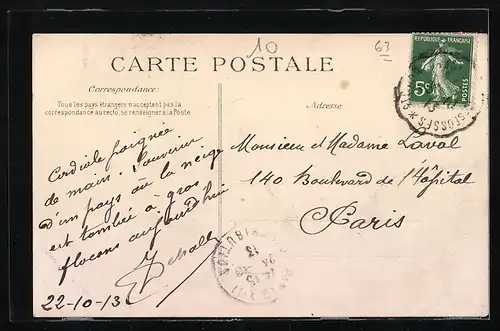 10
63
CARTE POSTALE
RÉPUBLIQUE FRANÇAISE
5c
POSTES
Correspondance:
Tous les pays étrangers n'acceptent pas la
correspondance au recto, se renseigner à la Poste.
Adresse
Cordiale poignée
de main. Souvenir
d'un pays où la neige
est tombée à gros
flocons aujourd'hui
22-10-13
Monsieur et Madame Laval
140 Boulevard de l'Hôpital
Paris
DISTRIBUTION